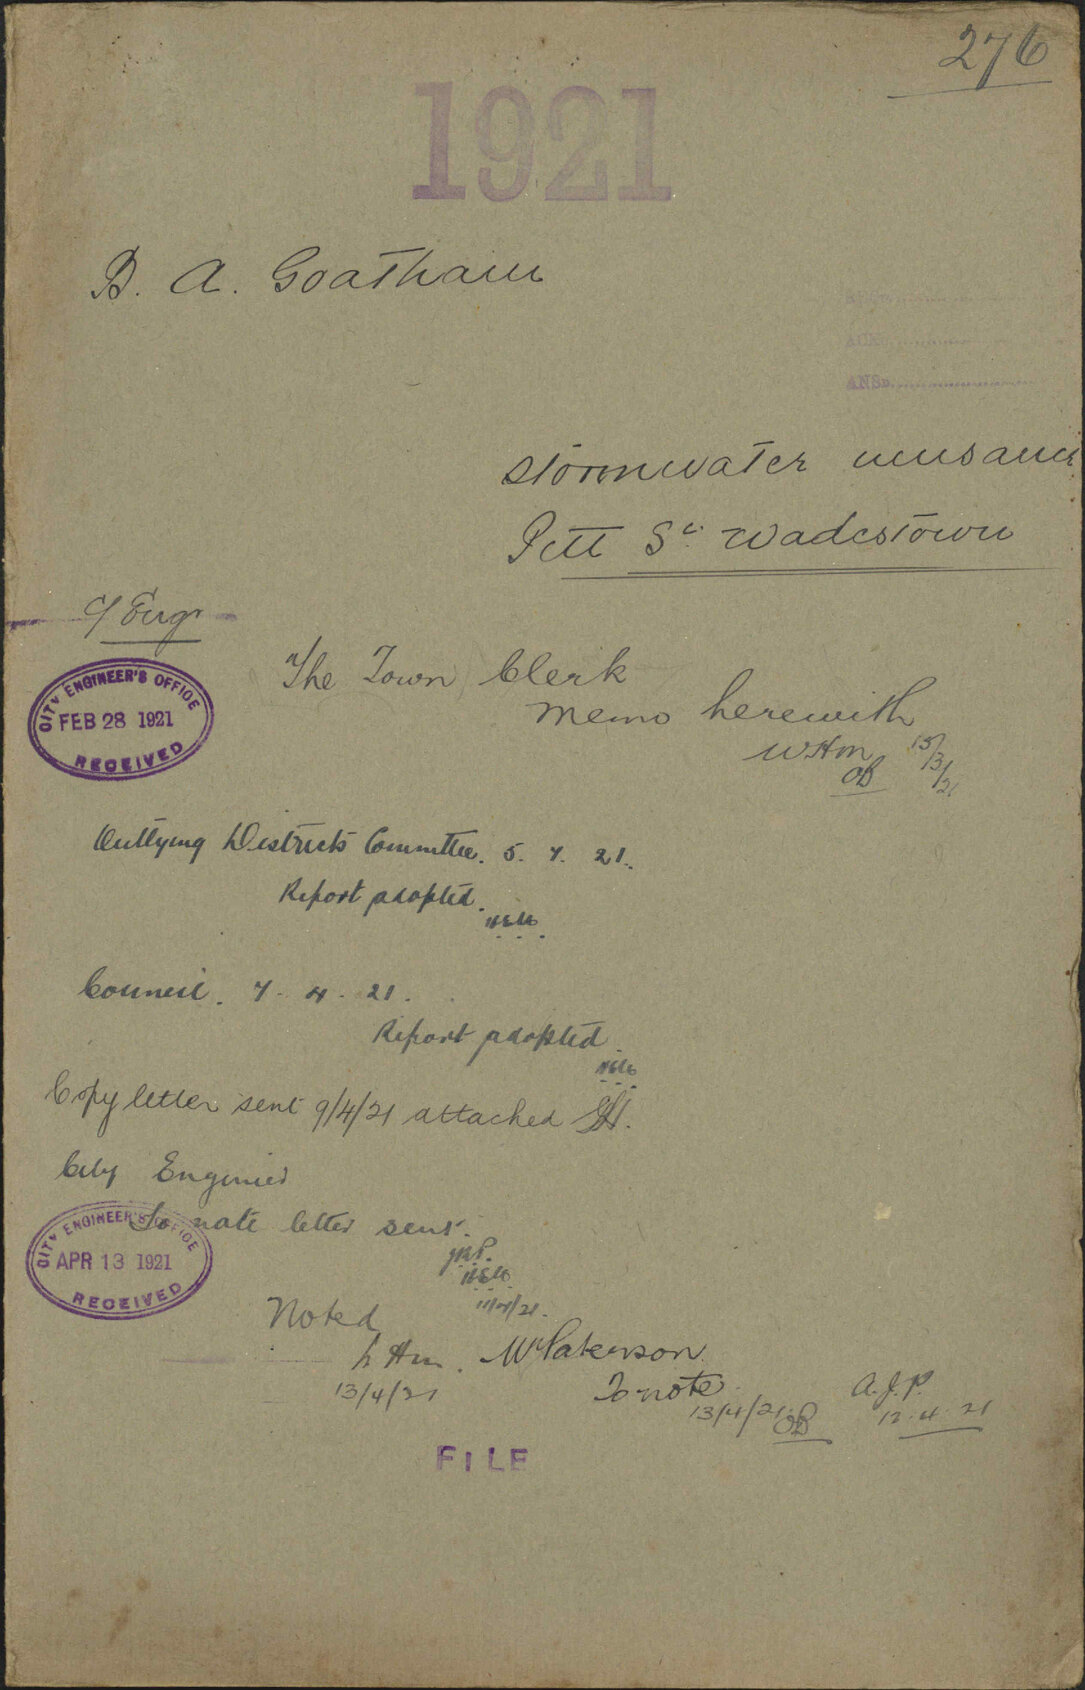 276
1921
B. A. Goatham
ACK
ANSD
Stormwater nuisance
Pitt St. Wadestown
C/Engr
CITY ENGINEER'S OFFICE
FEB 28 1921
RECEIVED
The Town Clerk
Memo herewith
WHM 15/3/21
OB
Outlying Districts Committee. 5. 4. 21.
Report adopted.
Council. 7. 4. 21.
Report adopted.
Copy letter sent 9/4/21 attached
City Engineer
To note letter sent.
CITY ENGINEER'S OFFICE
APR 13 1921
RECEIVED
11/4/21.
Noted
13/4/21
Mr Paterson
To note
13/4/21 OB
A.J.P.
12.4.21
FILE